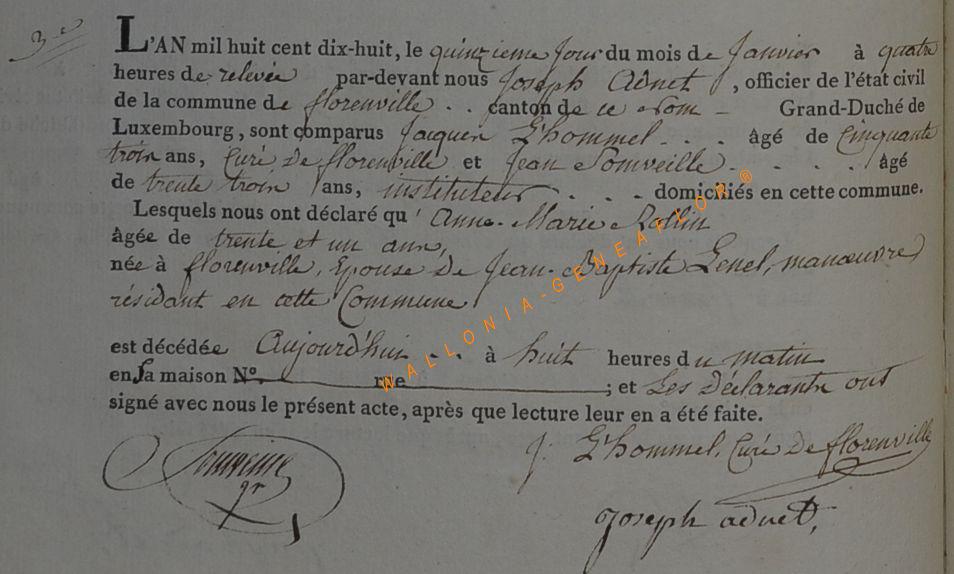 3e
L'AN mil huit cent dix-huit, le quinzieme Jour du mois de Janvier à quatre
heures de relevée par-devant nous Joseph Adnet, officier de l'état civil
de la commune de florenville . . canton de ce nom - Grand-Duché de
Luxembourg, sont comparus Jacques L'hommel . . . âgé de Cinquante
trois ans, Curé De florenville et Jean Somveille . . . . âgé
de trente trois ans, instituteur . . . - domiciliés en cette commune.
Lesquels nous ont déclaré qu'Anne-Marie Rollin
âgée de trente et un ans,
née à florenville, Epouse De Jean-Baptiste Genel, manœuvre
résidant en cette Commune
est décédée Aujourd'hui - . à huit heures du matin
en sa maison No. rue ; et Les Déclarants ont
signé avec nous le présent acte, après que lecture leur en a été faite.
J. L'hommel, Curé De florenville
Joseph adnet,
WALLONIA-GENEAFLOR®